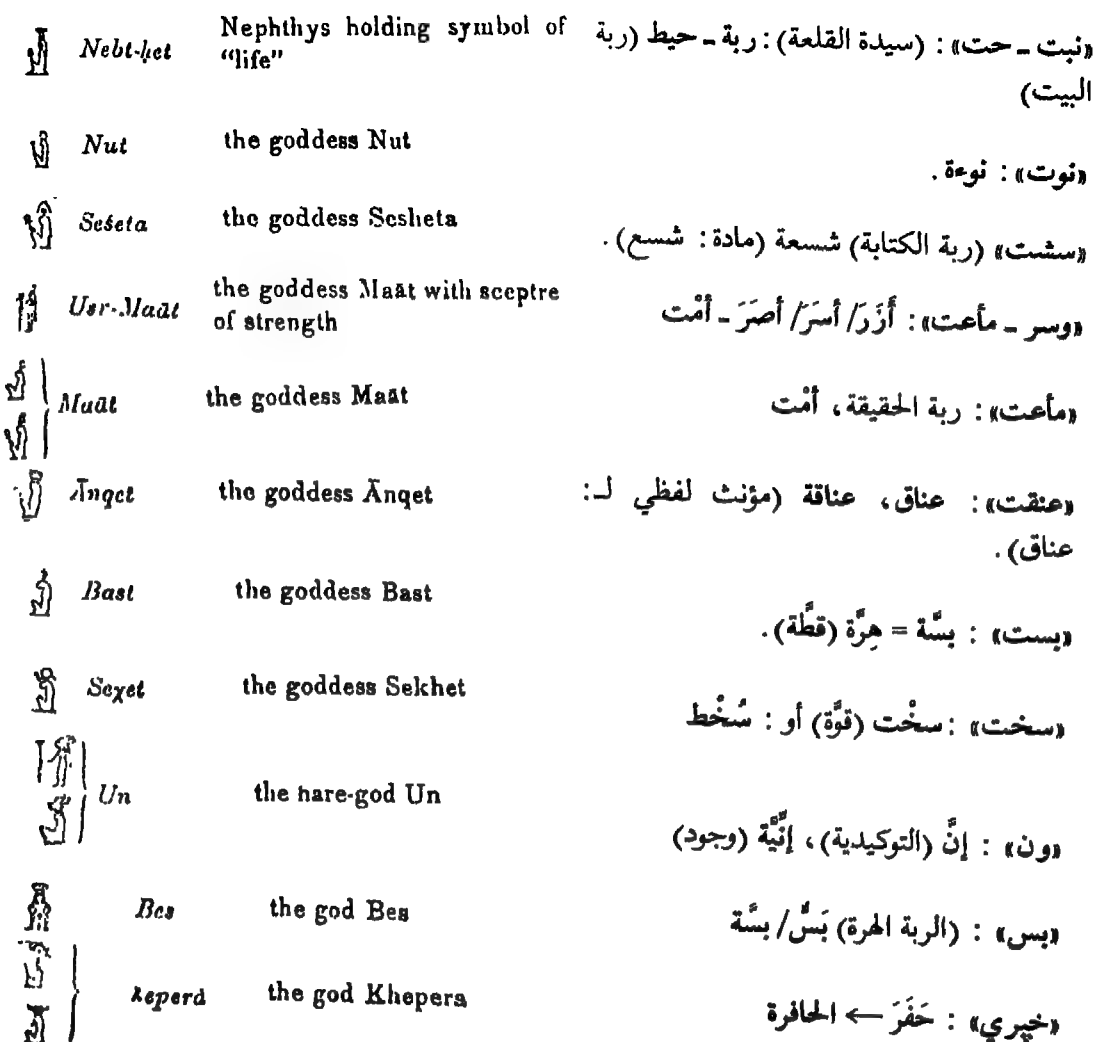 Nebt-ḥet Nephthys holding symbol of «نبت ـ حت» : (سيدة القلعة) : ربة ـ حيط (ربة
“life” البيت)
Nut the goddess Nut «نوت» : نوءة .
Seśeta the goddess Sesheta «سشت» (ربة الكتابة) شسعة (مادة : شسع) .
Usr-Maāt the goddess Maāt with sceptre «وسر ـ مأعت» : أَزَرَ/ أسَرَ/ أصَرَ ـ أمْت
of strength
Maāt the goddess Maāt «مأعت» : ربة الحقيقة، أمْت
Ānqet the goddess Ānqet «عنقت» : عناق، عناقة (مؤنث لفظي لـ :
عناق) .
Bast the goddess Bast «بست» : بسَّة = هِرَّة (قطَّة) .
Seχet the goddess Sekhet «سخت» : سخْت (قوَّة) أو : سُخْط
Un the hare-god Un «ون» : إنَّ (التوكيدية)، إنِّيَّة (وجود)
Bes the god Bes «بس» : (الربة الهرة) بَسٌّ/ بسَّة
the god Khepera «خپري» : حَفَرَ ← الحافرة